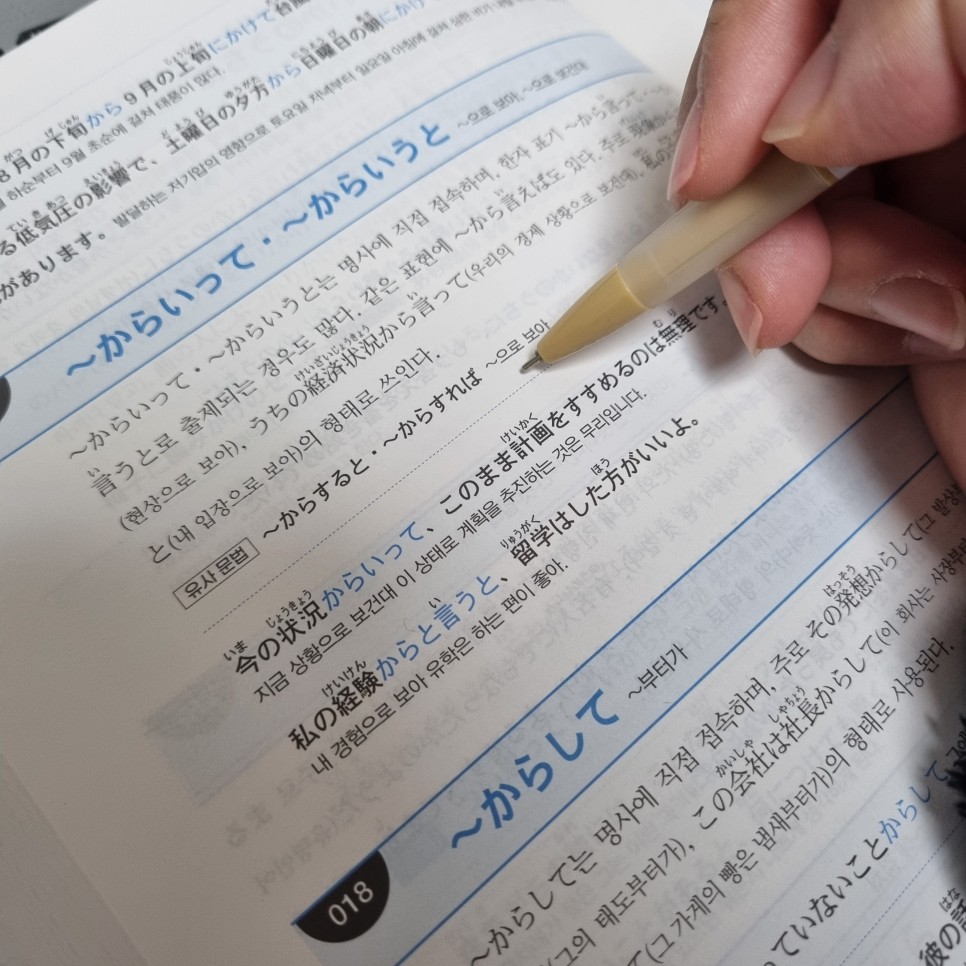 8月の下旬から9月の上旬にかけて台風
하순부터 9월 초순에 걸쳐 태풍이 많다.
る低気圧の影響で、土曜日の夕方から日曜日の朝にかけて
があります。 발달하는 저기압의 영향으로 토요일 저녁부터 일요일 아침에 걸쳐
～からいって・～からいうと ～으로 보아, ～으로 보건대
～からいって・～からいうとは 명사에 직접 접속하며, 한자 표기 ～から言って
言うとろ 출제되는 경우도 많다. 같은 표현에 ～から言えばも 있다. 주로
(현상으로 보아), うちの経済状況から言って(우리의 경제 상황으로 보건대),
と(내 입장으로 보아)의 형태로 쓰인다.
유사 문법 ～からすると・～からすれば ～으로 보아
今の状況からいって、このまま計画をすすめるのは無理です。
지금 상황으로 보건대 이 상태로 계획을 추진하는 것은 무리입니다.
私の経験からと言うと、留学はした方がいいよ。
내 경험으로 보아 유학은 하는 편이 좋아.
018 ～からして ～부터가
～からしては 명사에 직접 접속하며, 주로 その発想からして(그
(그의 태도부터가), この会社は社長からして(이 회사는 사장부터
て(그 가게의 빵은 냄새부터가)의 형태로 사용된다.
ていないことからして
彼の